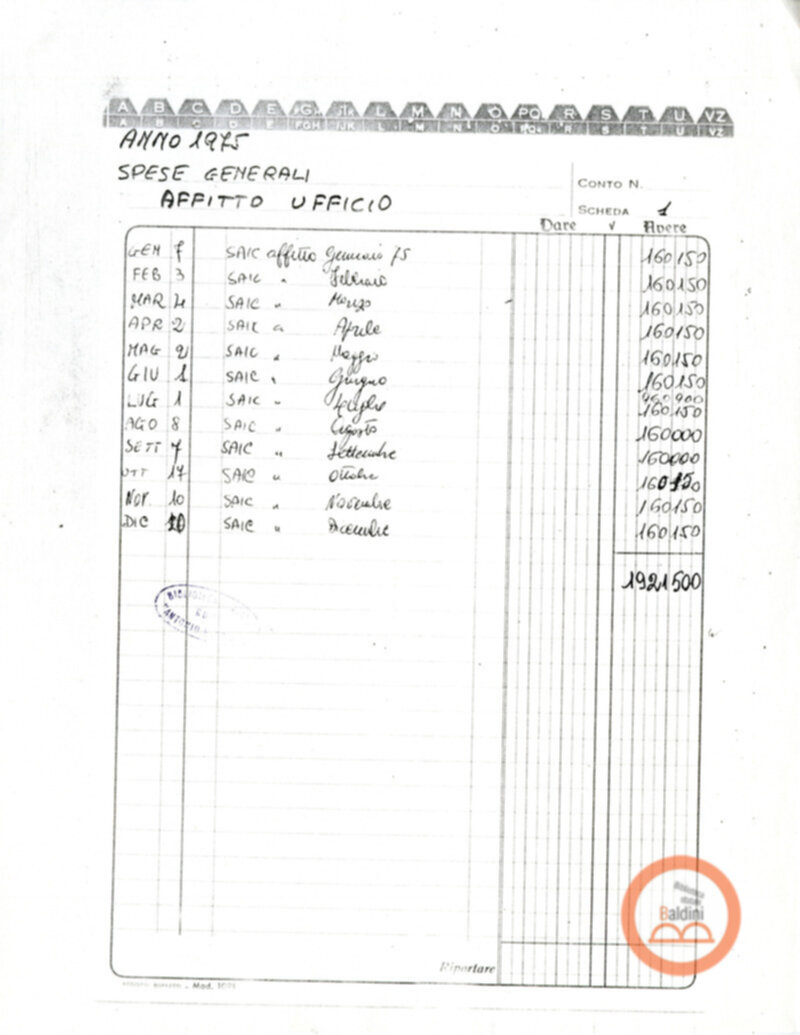 A B C D E FGH IJK L M N O PQ R S T U VZ
A B C D E FGH IJK L M N O PQ R S T U VZ
ANNO 1975
SPESE GENERALI
AFFITTO UFFICIO
CONTO N.
SCHEDA 1
Dare √ Avere
GEN 7 SAIC affitto Gennaio 75 160150
FEB 3 SAIC " Febbraio 160150
MAR 4 SAIC " Marzo 160150
APR 2 SAIC " Aprile 160150
MAG 2 SAIC " Maggio 160150
GIU 1 SAIC " Giugno 160150
960900
LUG 1 SAIC " Luglio 160150
AGO 8 SAIC " Agosto 160000
SETT 7 SAIC " Settembre 160000
OTT 17 SAIC " Ottobre 160150
NOV. 10 SAIC " Novembre 160150
DIC 10 SAIC " Dicembre 160150
1921500
Riportare
Mod.
Biblioteca
statale
Baldini